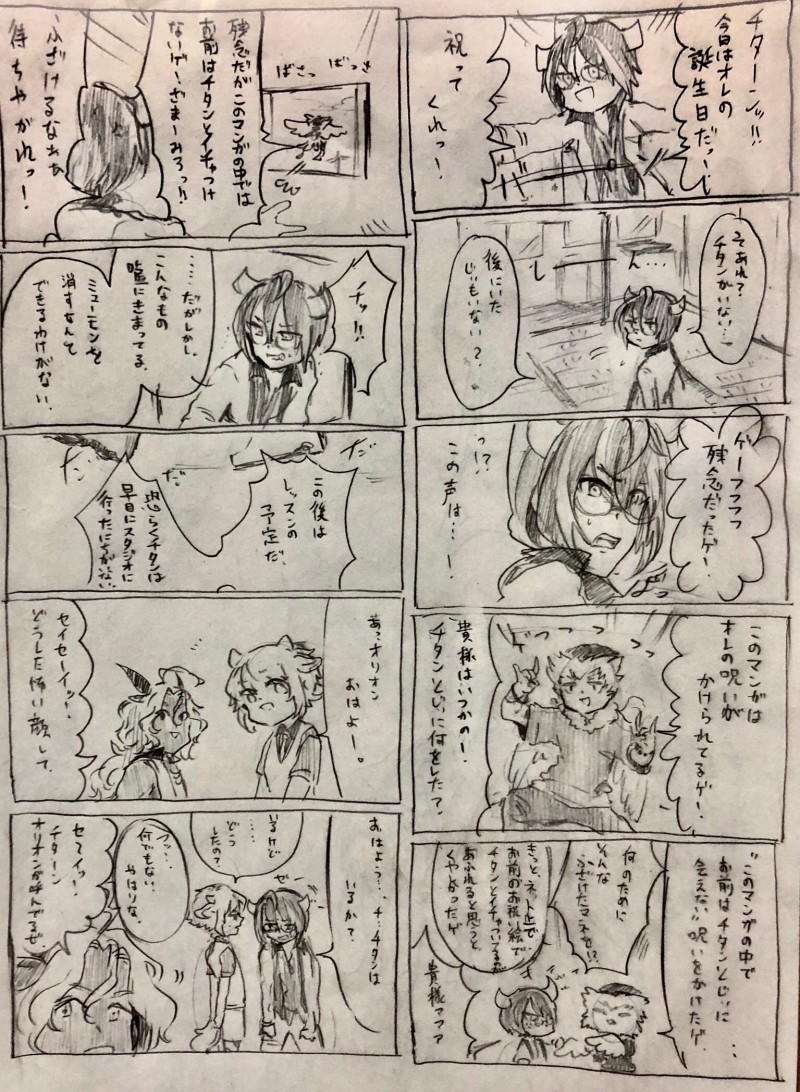 チターンッ!!
今日はオレの
誕生日だっー!
祝って
くれっー!
そあれ?
チタンがいない…
しーーん…
後にいた
じぃもいない?
ゲーフフフフ
残念だったゲー。
っ!?
この声は…!
このマンガは
オレの呪いが
かけられてるゲー。
ゲフフフっっ
貴様はいつかのー!
チタンとじぃに何をした?
"このマンガの中で
お前はチタンとじぃに
会えない"呪いをかけたゲ。
何のために
そんな
ふざけたマネを!?
きっと、ネット上で
お前のお祝い絵で
チタンとイチャついてるのが
あふれると思うと、
くやしかったゲ
貴様ァァァ
ばさっ ばっさ
残念だがこのマンガの中では
お前はチタンとイチャつけ
ないゲー!ざまーみろっ!!
ふざけるなぁぁ
待ちやがれっー!
チッ!!
……だがしかし、
こんなもの
嘘にきまってる。
ミューモンを
消すなんて
できるわけがない。
だっ
だっ
この後は
レッスンの
予定だ。
恐らくチタンは
早目にスタジオに
行ったにちがいない
あっオリオン
おはよー。
セイセーイッ!
どうした怖い顔して。
おはよう…、チ、チタンは
いるか?
いるけど
……
どこっ
したの?
フッ…
何でもない。
やはりな。
セーイッ!
チターン
オリオンが呼んでるぜ。